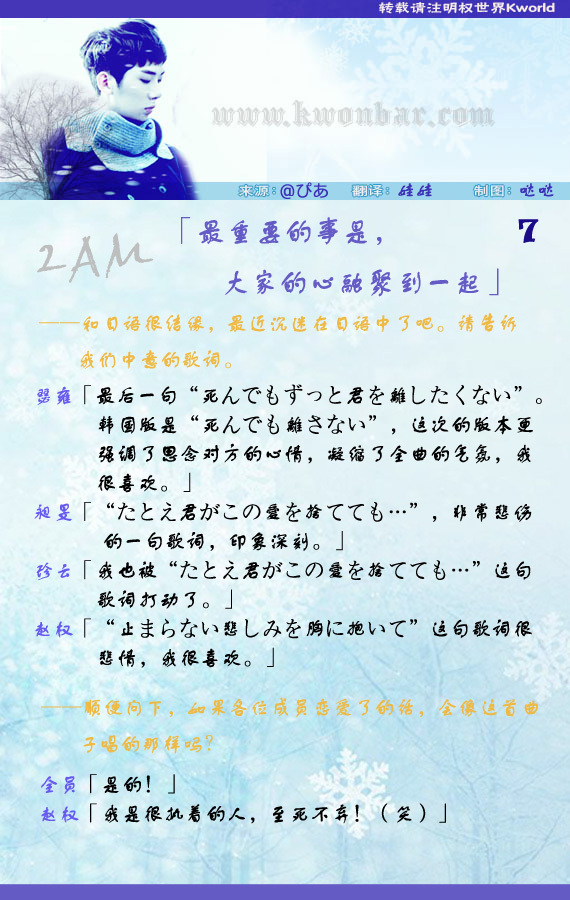 转载请注明权世界Kworld
www.kwonbar.com
来源：@ぴあ 翻译：硅硅 制图：哒哒
2AM
「最重要的事是，
7
大家的心融聚到一起」
——和日语很结缘，最近沉迷在日语中了吧。请告诉
我们中意的歌词。
瑟雍「最后一句“死んでもずっと君を離したくない”。
韩国版是“死んでも離さない”，这次的版本更
强调了思念对方的心情，凝缩了全曲的气氛，我
很喜欢。」
昶旻「“たとえ君がこの愛を捨てても…”，非常悲伤
的一句歌词，印象深刻。」
珍云「我也被“たとえ君がこの愛を捨てても…”这句
歌词打动了。」
赵权「“止まらない悲しみを胸に抱いて”这句歌词很
悲情，我很喜欢。」
——顺便问下，如果各位成员恋爱了的话，会像这首曲
子唱的那样吗？
全员「是的！」
赵权「我是很执着的人，至死不弃！（笑）」